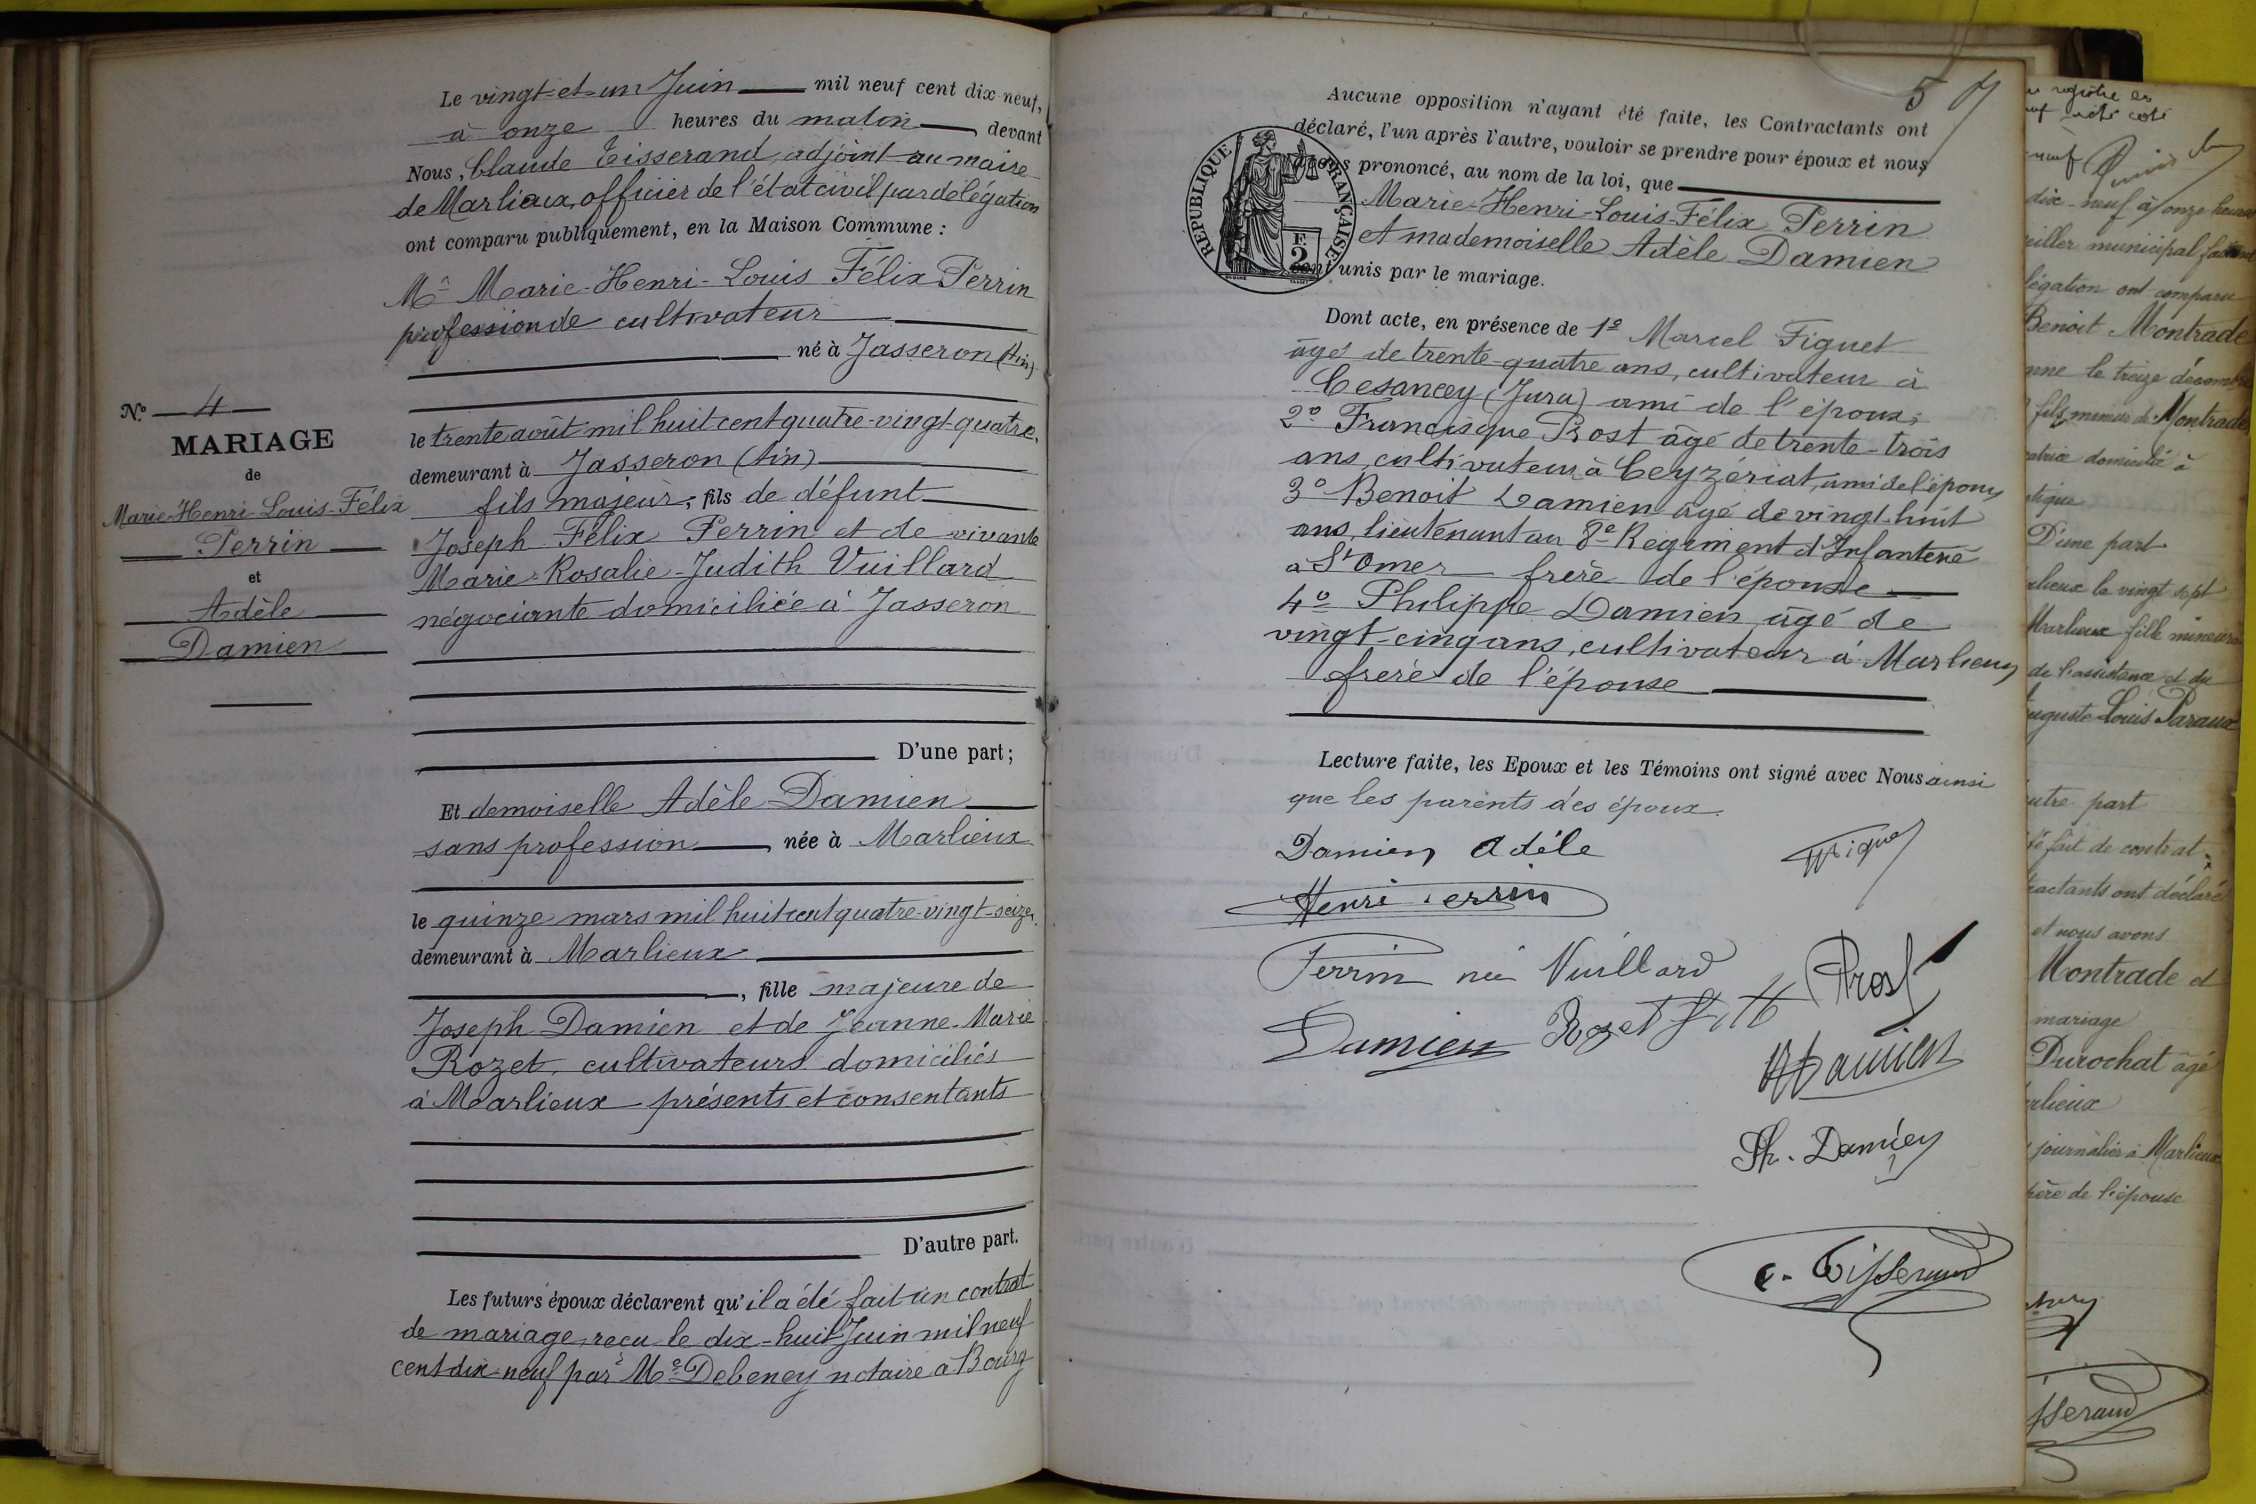 Le vingt-et-un Juin mil neuf cent dix-neuf,
à onze heures du matin, devant
Nous, Claude Tisserand, adjoint au maire
de Marlieux, officier de l'état civil par délégation
ont comparu publiquement, en la Maison Commune :
Mr Marie-Henri-Louis Félix Perrin
profession de cultivateur
né à Jasseron (Ain)
le trente août mil huit cent quatre-vingt-quatre,
demeurant à Jasseron (Ain)
fils majeur, fils de défunt
Joseph Félix Perrin et de vivante
Marie-Rosalie-Judith Vuillard
négociante domiciliée à Jasseron
D'une part ;
Et demoiselle Adèle Damien
sans profession, née à Marlieux
le quinze mars mil huit cent quatre-vingt-seize,
demeurant à Marlieux
, fille majeure de
Joseph Damien et de Jeanne-Marie
Rozet, cultivateurs domiciliés
à Marlieux présents et consentants
D'autre part.
Les futurs époux déclarent qu'il a été fait un contrat
de mariage, reçu le dix-huit Juin mil neuf
cent dix-neuf par Me Debeney notaire à Bourg
No 4
MARIAGE
de
Marie-Henri-Louis-Félix
Perrin
et
Adèle
Damien
5
Aucune opposition n'ayant été faite, les Contractants ont
déclaré, l'un après l'autre, vouloir se prendre pour époux et nous
avons prononcé, au nom de la loi, que
Marie-Henri-Louis-Félix Perrin
et mademoiselle Adèle Damien
sont unis par le mariage.
RÉPUBLIQUE FRANÇAISE
F.
2
Dont acte, en présence de 1º Marcel Figuet
âgé de trente-quatre ans, cultivateur à
Cesancey (Jura) ami de l'époux ;
2º Francisque Prost âgé de trente-trois
ans, cultivateur à Ceyzériat, ami de l'époux
3º Benoit Damien âgé de vingt-huit
ans, lieutenant au 8e Regiment d'Infanterie
à St Omer frère de l'épouse
4º Philippe Damien, âgé de
vingt-cinq ans, cultivateur à Marlieux
frère de l'épouse
Lecture faite, les Epoux et les Témoins ont signé avec Nous ainsi
que les parents des époux.
Damien Adèle
Henri Perrin
Perrin née Vuillard
Prost
Damien Rozet
Damien
Ph. Damien
C. Tisserand
dix-neuf à onze heures
municipal
légation ont comparu
Benoit Montrade
le treize décembre
fils mineur de Montrade
domicilié à
D'une part
le vingt sept
Marlieux fille mineure
de l'assistance et du
Auguste Louis Paraux
autre part
fait de contrat
ont déclaré
et nous avons
Montrade et
mariage
Durochat âgé
journalier à Marlieux
père de l'épouse